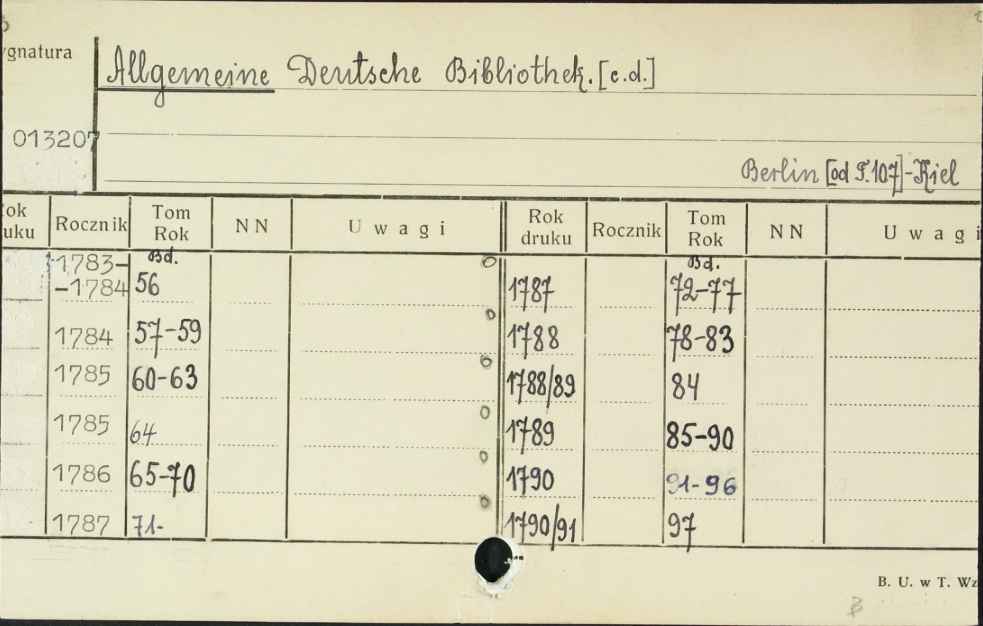 ygnatura
Allgemeine Deutsche Bibliothek. [c.d.]
013207
Berlin [od T.107]-Kiel
ok uku Rocznik Tom Rok NN Uwagi Rok druku Rocznik Tom Rok NN Uwagi
1783- Bd. Bd.
-1784 56 1787 72-77
1784 57-59 1788 78-83
1785 60-63 1788/89 84
1785 64 1789 85-90
1786 65-70 1790 91-96
1787 71- 1790/91 97
B. U. w T. Wz